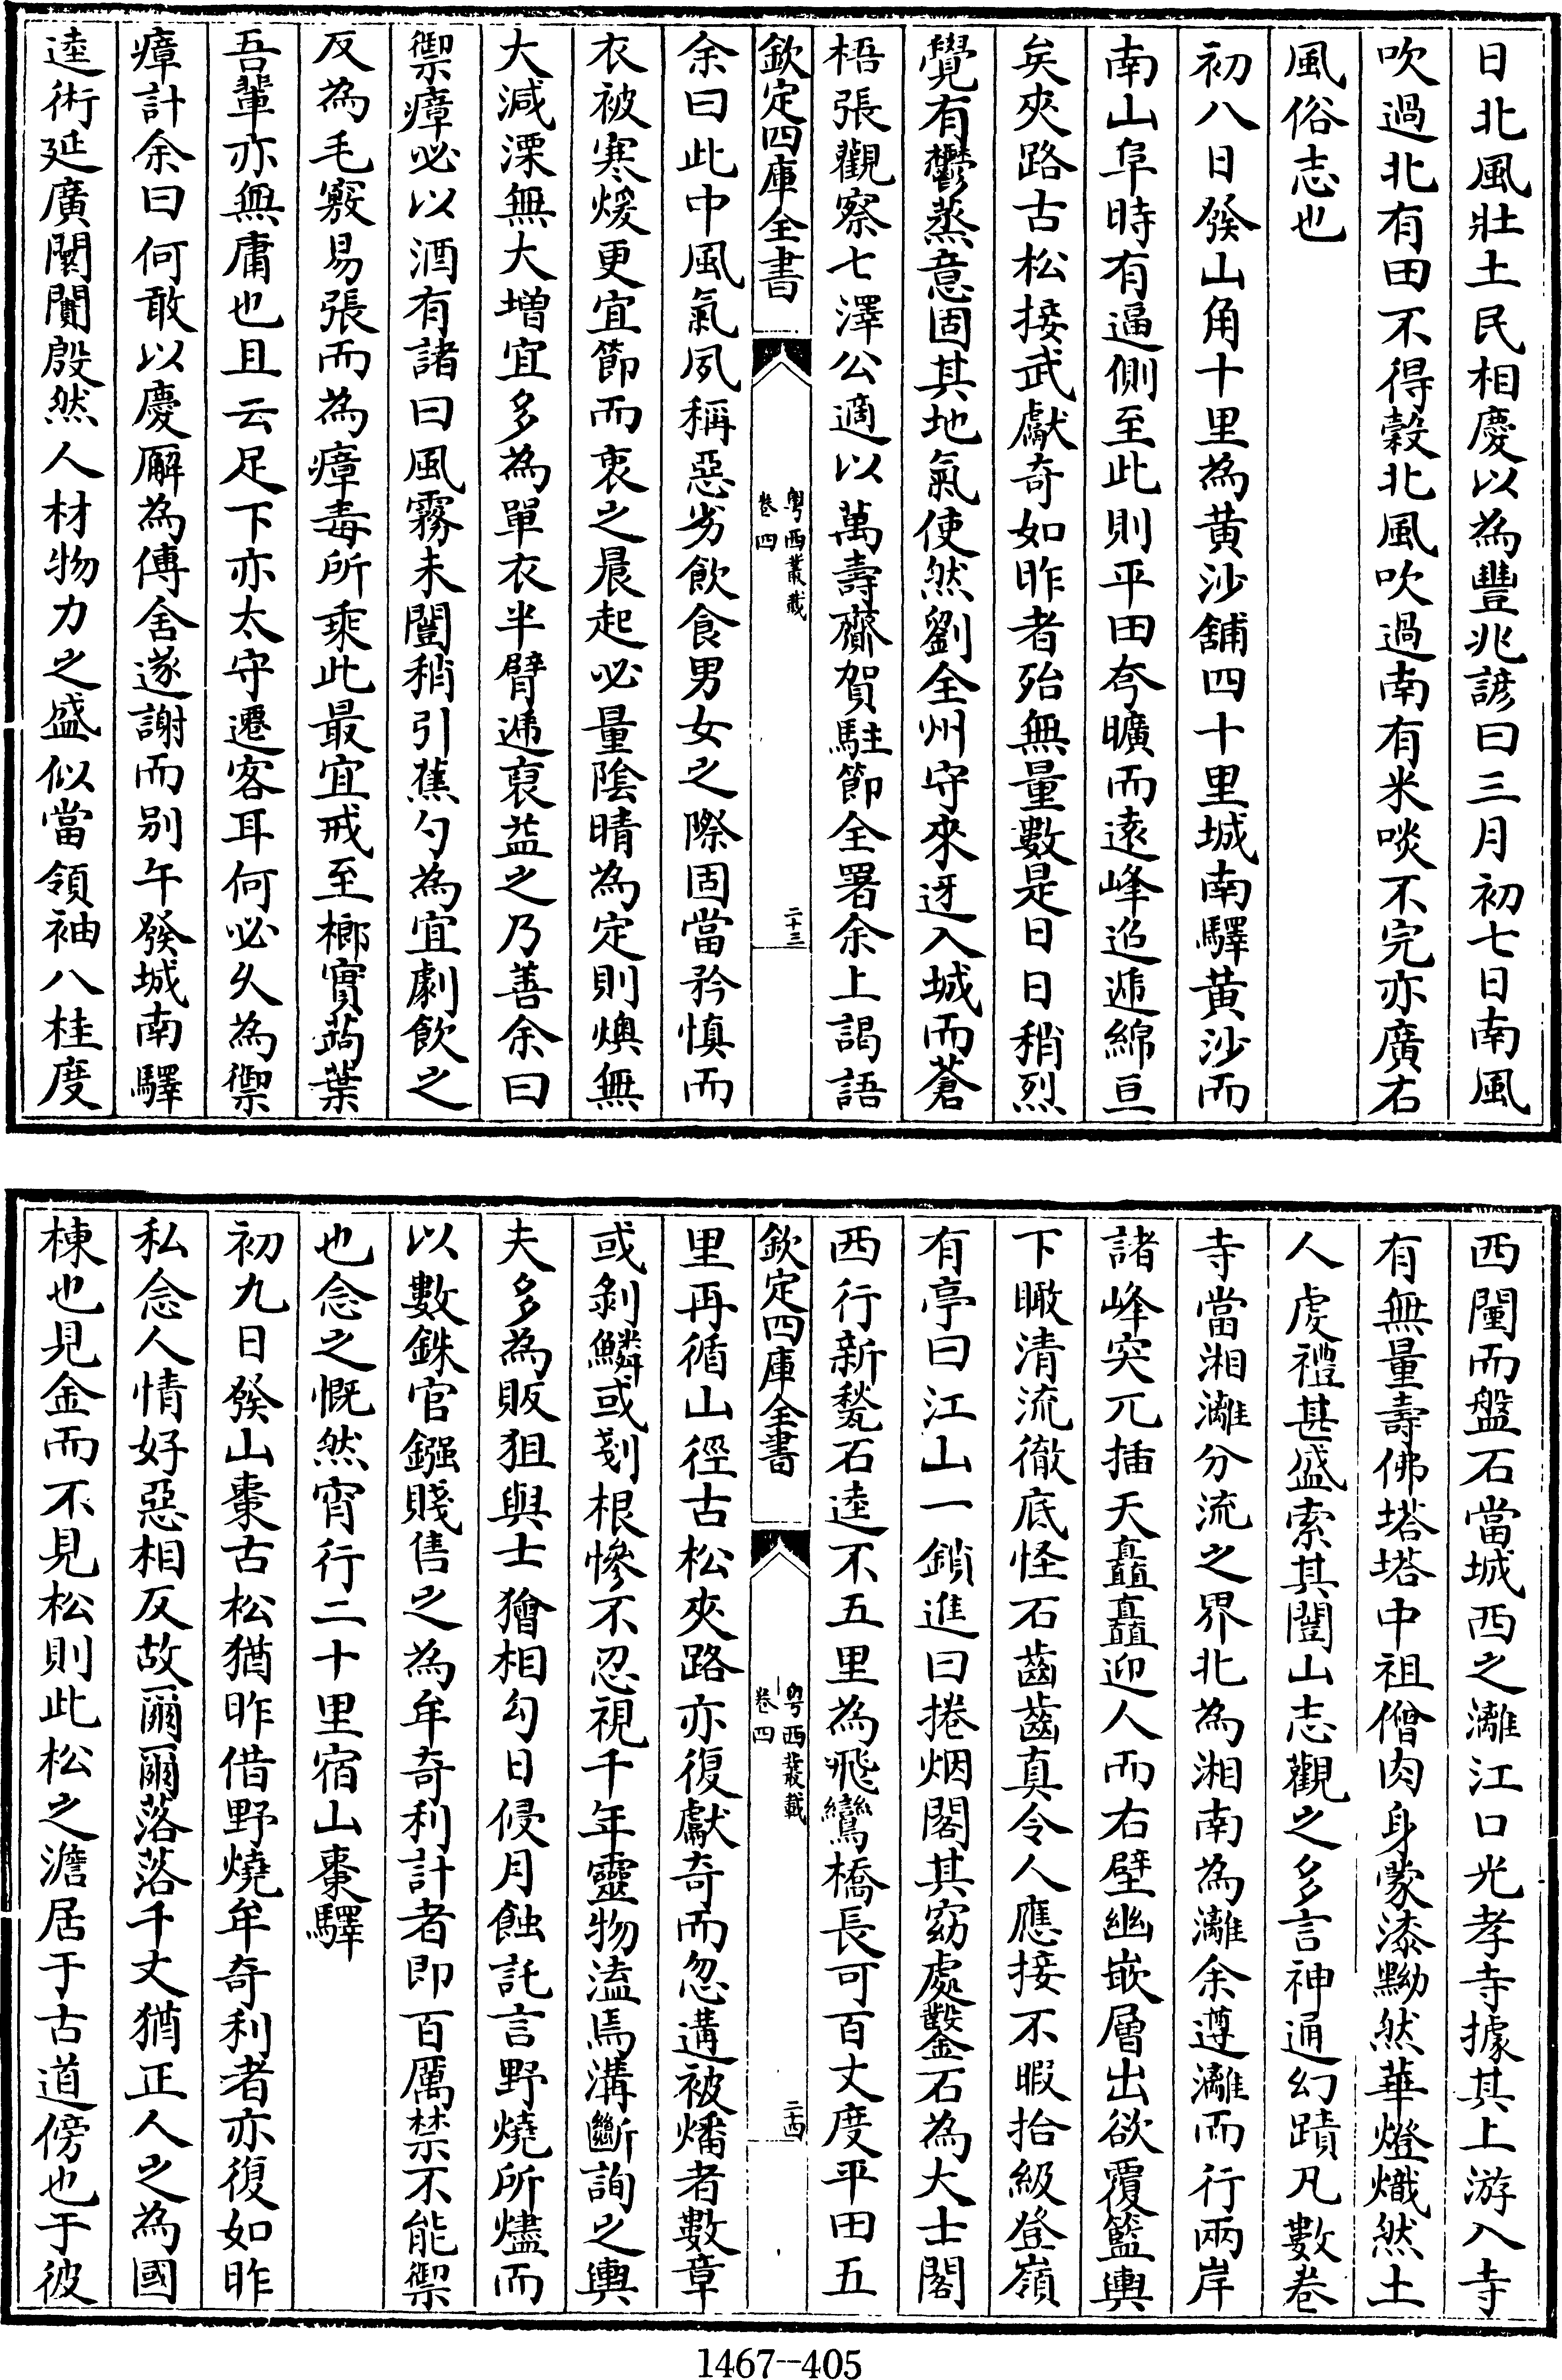 日北風壯土民相慶以為豐兆諺曰三月初七日南風
吹過北有田不得穀北風吹過南有米啖不完亦廣右
風俗志也
初八日發山角十里為黃沙舖四十里城南驛黃沙而
南山阜時有逼側至此則平田夸曠而遠峰迢遞綿亘
矣夾路古松接武獻奇如昨者殆無量數是日日稍烈
覺有鬱蒸意固其地氣使然劉全州守來迓入城而蒼
梧張觀察七澤公適以萬壽齎賀駐節全署余上謁語
欽定四庫全書
粵西叢載
卷四
二十三
余曰此中風氣夙稱惡劣飲食男女之際固當矜慎而
衣被寒煖更宜節而衷之晨起必量陰晴為定則燠無
大減溧無大增宜多為單衣半臂遞裒益之乃善余曰
禦瘴必以酒有諸曰風霧未闓稍引蕉勺為宜劇飲之
反為毛竅易張而為瘴毒所乘此最宜戒至榔實蒟葉
吾輩亦無庸也且云足下亦太守遷客耳何必久為禦
瘴計余曰何敢以慶廨為傳舍遂謝而別午發城南驛
逵術延廣闤闠殷然人材物力之盛似當領袖八桂度
西闉而盤石當城西之灕江口光孝寺據其上游入寺
有無量壽佛塔塔中祖僧肉身蒙漆黝然華燈熾然土
人虔禮甚盛索其闓山志觀之多言神通幻蹟凡數卷
寺當湘灕分流之界北為湘南為灕余遵灕而行兩岸
諸峰突兀插天矗矗迎人而右壁幽嵌層出欲覆籃輿
下瞰清流徹底怪石齒齒真令人應接不暇拾級登嶺
有亭曰江山一鎖進曰捲烟閣其窈處鑿石為大士閣
西行新甃石逵不五里為飛鸞橋長可百丈度平田五
欽定四庫全書
粵西叢載
卷四
二十四
里再循山徑古松夾路亦復獻奇而忽遘被燔者數章
或剝鱗或剗根慘不忍視千年靈物溘焉溝斷詢之輿
夫多為販狙與士獪相勾日侵月蝕託言野燒所燼而
以數銖官鏹賤售之為牟奇利計者即百厲禁不能禦
也念之慨然宵行二十里宿山棗驛
初九日發山棗古松猶昨借野燒牟奇利者亦復如昨
私念人情好惡相反故爾爾落落千丈猶正人之為國
棟也見金而不見松則此松之澹居于古道傍也于彼
1467--405